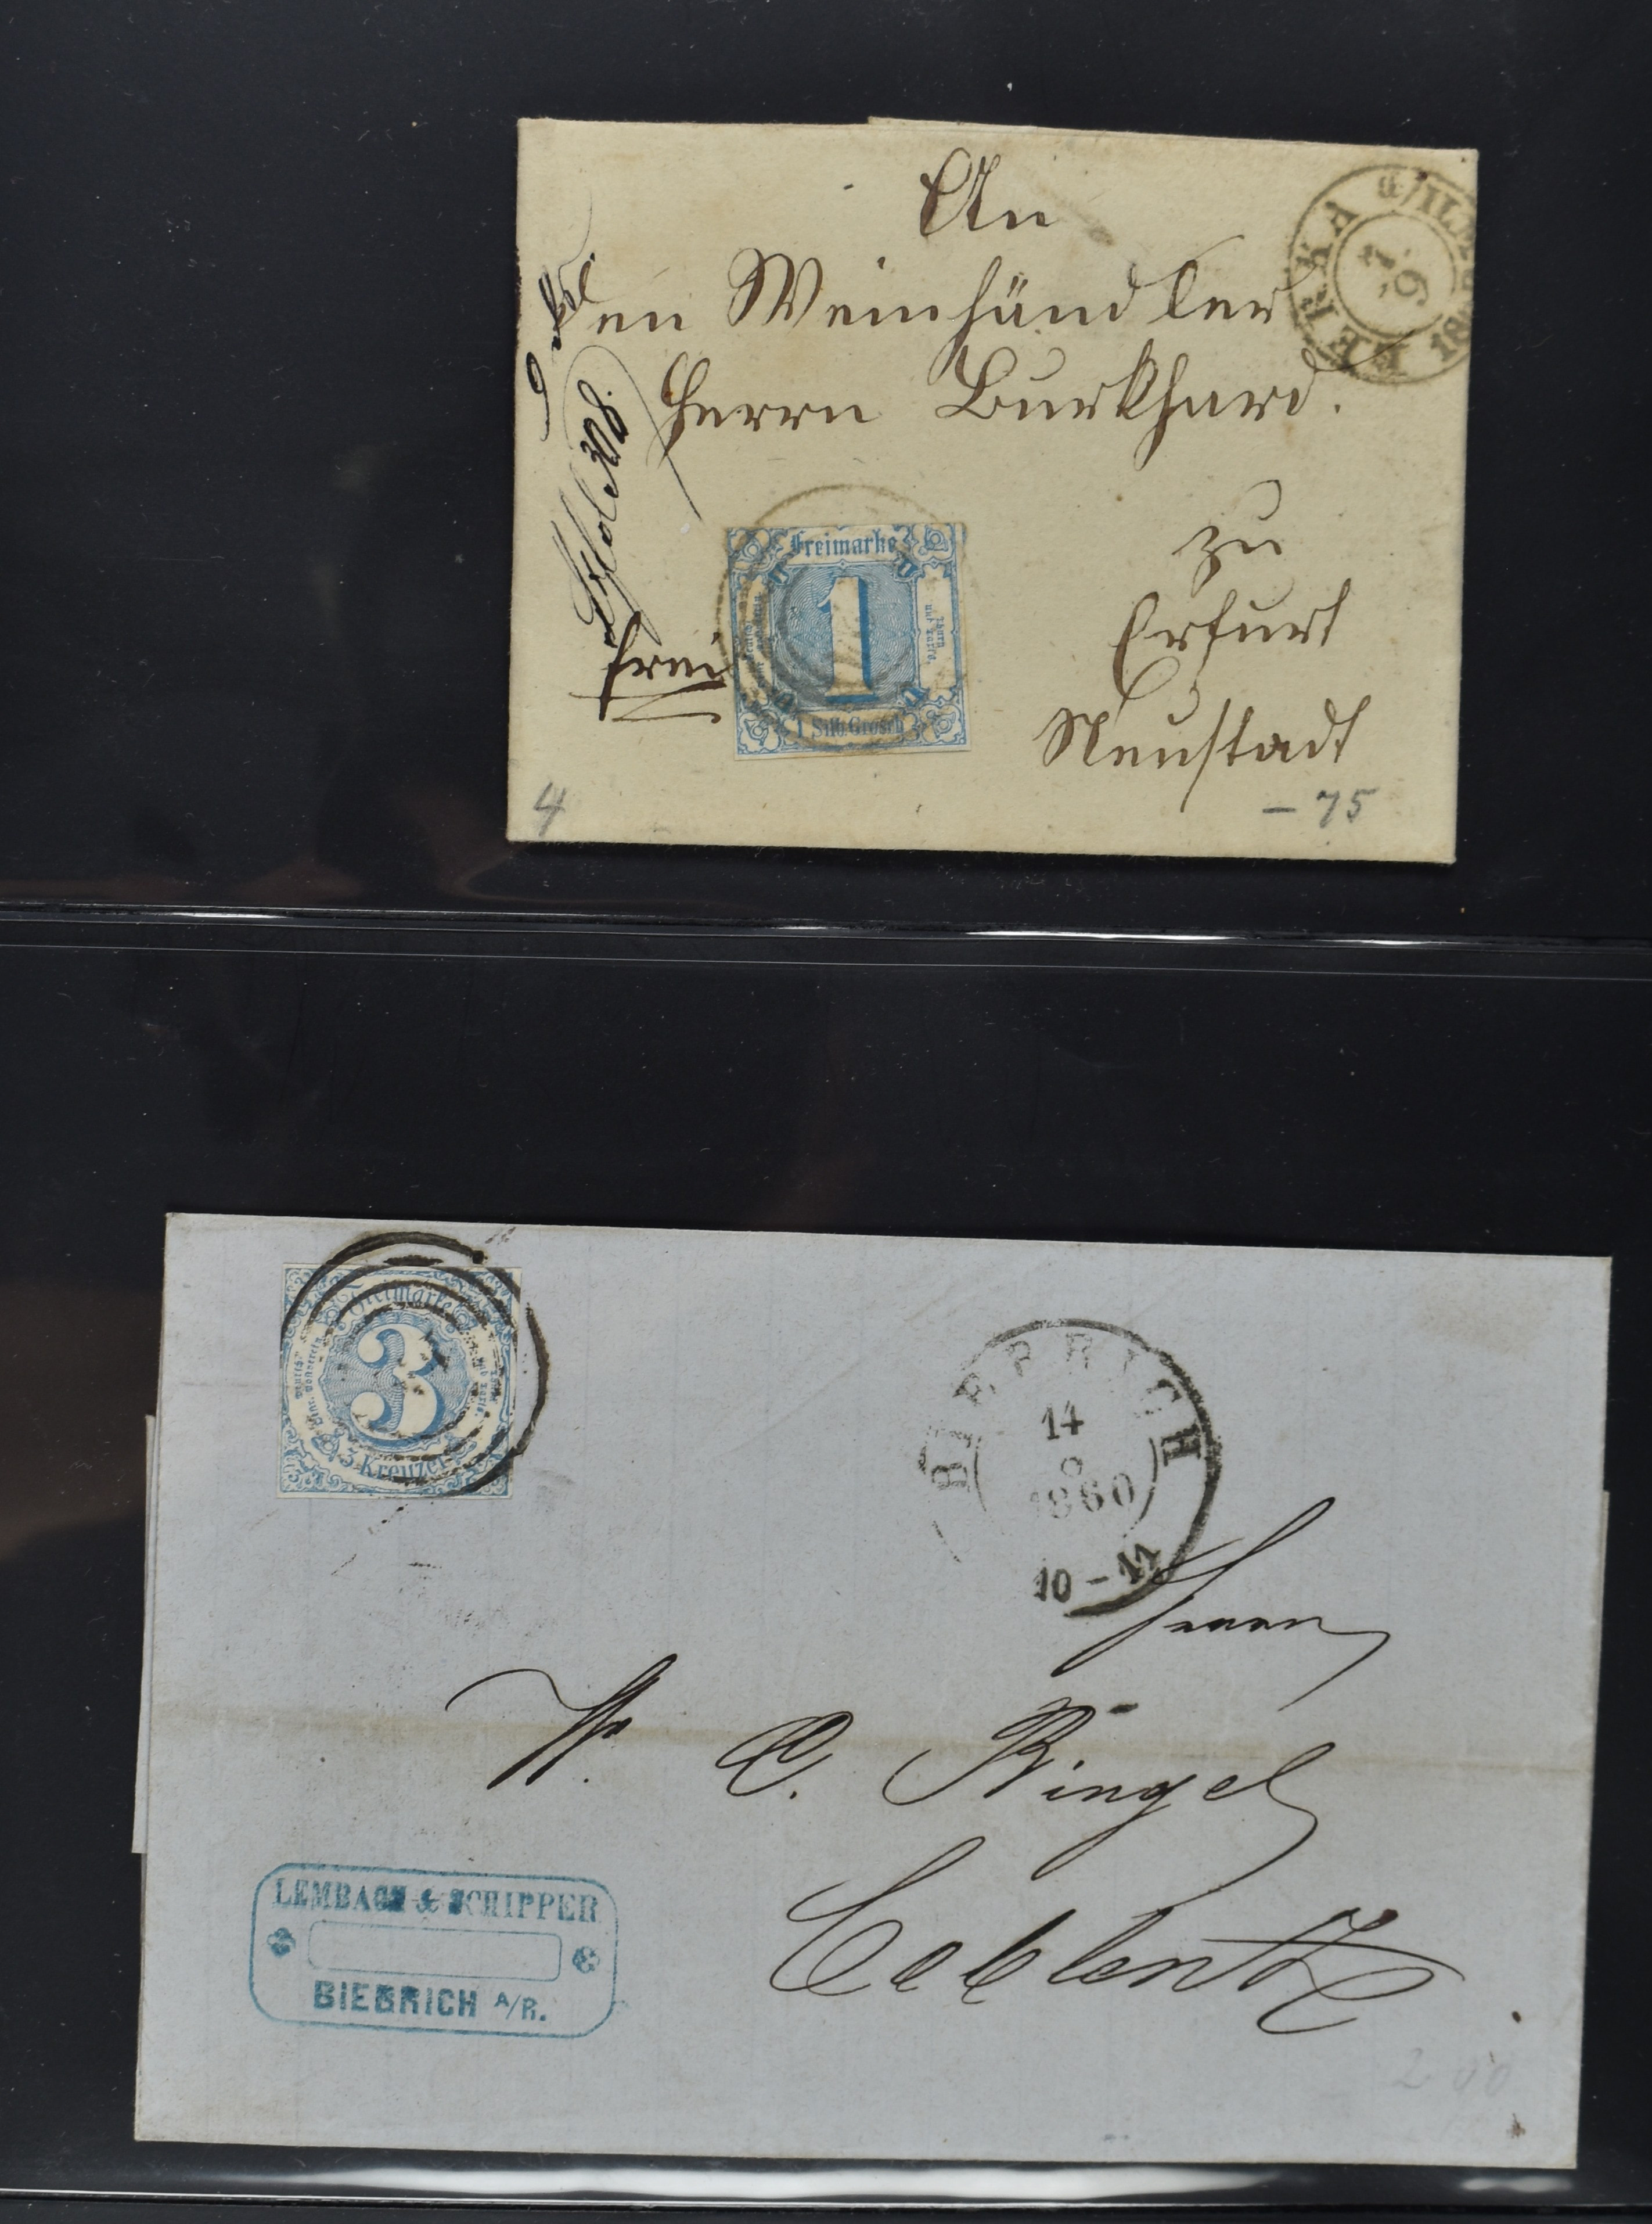 An
den Weinhändler
Herrn Burkhard.
zu
Erfurt
Neustadt
frei
BERKA a/ILM
Freimarke
1
1 Silb. Grosch
4
- 75
Freimarke
3
3 Kreuzer
BIEBRICH
14
1860
10 - 11
Herrn
W. C. Ringel
Coblentz
LEMBACH & SCHIPPER
BIEBRICH A/R.
200